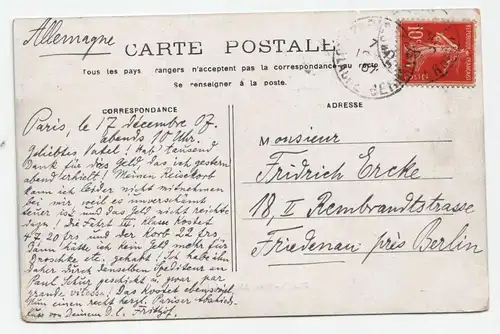 Allemagne
CARTE POSTALE
Tous les pays étrangers n'acceptent pas la correspondance au recto
Se renseigner à la poste.
CORRESPONDANCE
ADRESSE
RÉPUBLIQUE FRANÇAISE
10
Paris, le 17 décembre 07.
abends 10 Uhr.
Geliebter Vatel! Hab' tausend
Dank für dies Geld, das ich gestern
abend erhielt! Meinen Reisekorb
kann ich leider nicht mitnehmen
bei mir weil es unverschämt
teuer ist und das Geld nicht reichte
dazu! Die Fahrt III. klasse kostet
47.20 frs und der Korb 22 frs
Dann hätte ich kein Geld mehr für
Droschke etc. gehabt! Ich habe ihn
daher durch denselben Spediteur an
Paul Schür geschickt u. zwar par
grande vitesse. Das kostet ebensoviel
Nun einen recht herzl. Pariser Abschieds-
kuss von Deinem d. l. Fritzjof.
Monsieur
Fridrich Ercke
18, II Rembrandtstrasse
Friedenau près Berlin